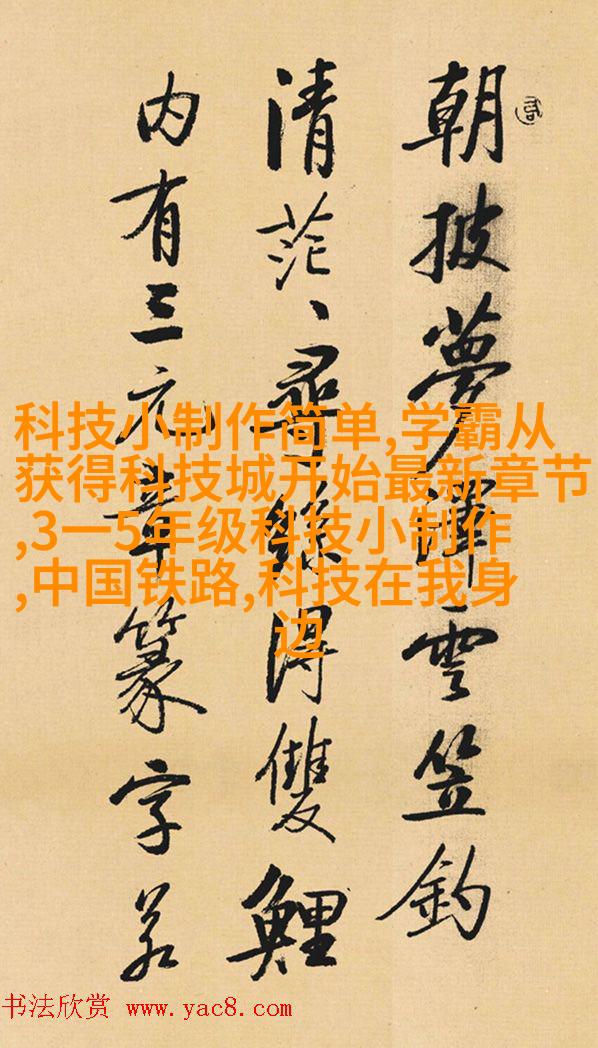 朝披夢澤雲笠釣
清茫、尋絲得雙鯉
内有三元章篆字若
科技小制作简单,学霸从
获得科技城开始最新章节
,3一5年级科技小制作
,中国铁路,科技在我身
边
书法欣赏 www.yac8.com